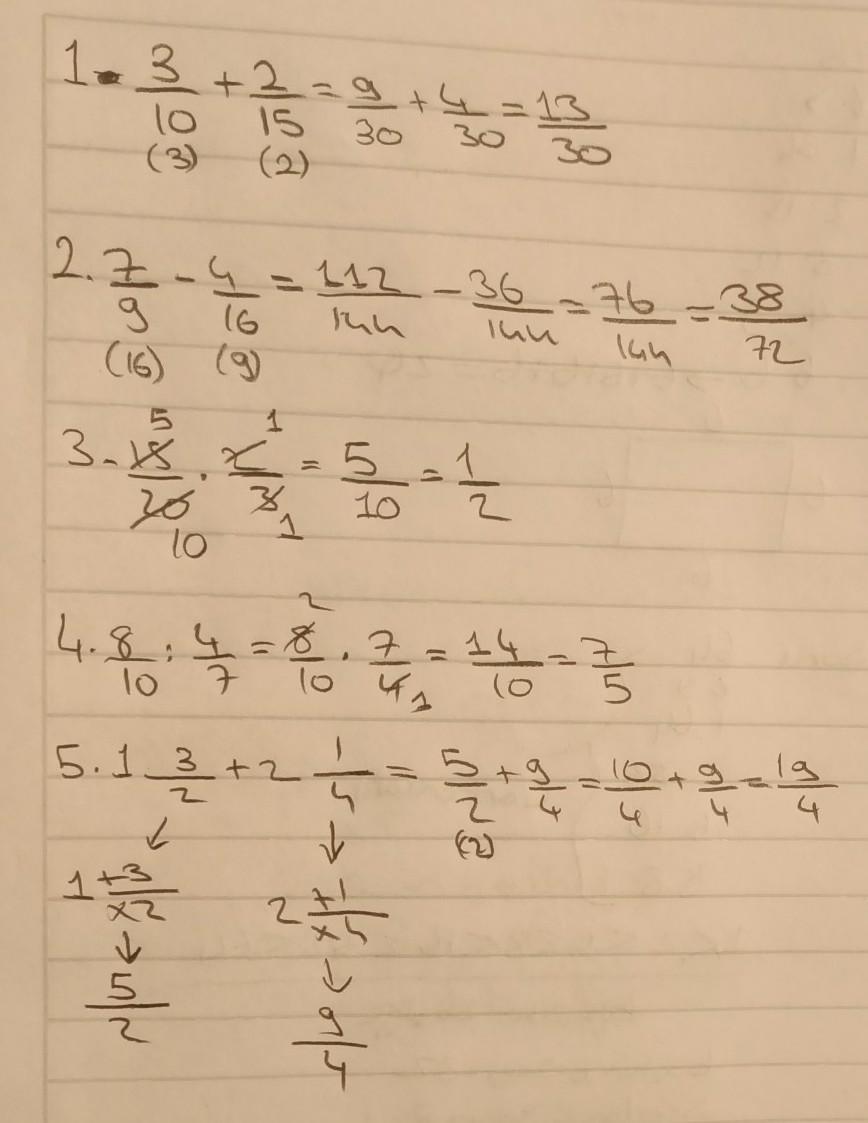 1. 3/10 + 2/15 = 9/30 + 4/30 = 13/30
(3) (2)
2. 7/9 - 4/16 = 112/144 - 36/144 = 76/144 = 38/72
(16) (9)
5 1
3. 15/20 · 2/3 = 5/10 = 1/2
10 1
2
4. 8/10 : 4/7 = 8/10 · 7/4 = 14/10 = 7/5
1
5. 1 3/2 + 2 1/4 = 5/2 + 9/4 = 10/4 + 9/4 = 19/4
(2)
↙ ↓
1 +3/×2 2 +1/×4
↓ ↓
5/2 9/4